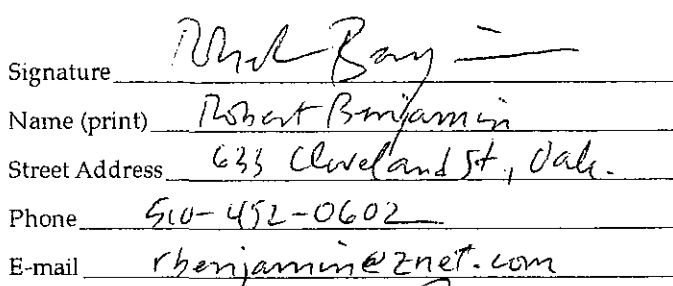 Signature
Name (print) Robert Benjamin
Street Address 633 Cleveland St., Oak.
Phone 510-452-0602
E-mail rbenjamin@znet.com